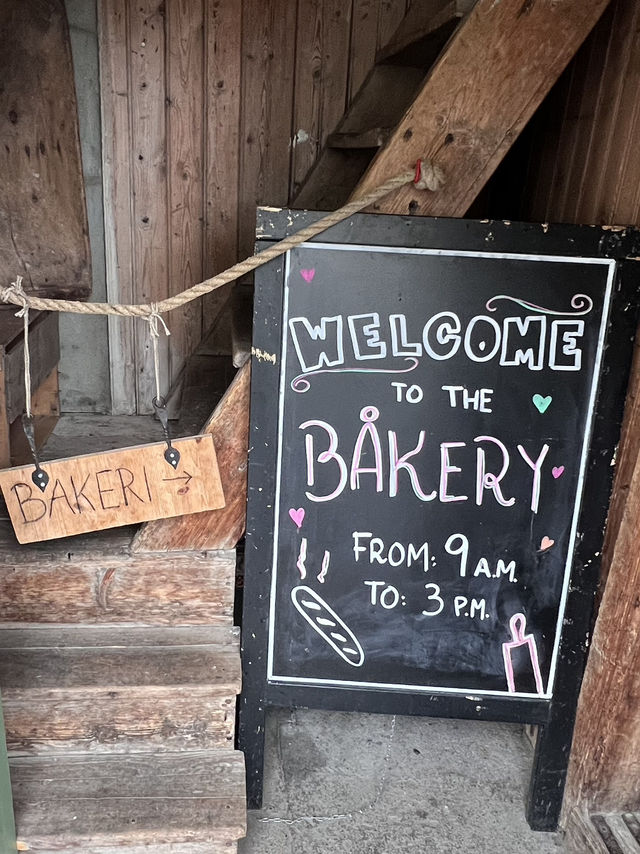 WELCOME
TO THE
BÅKERY
FROM: 9 A.M.
TO: 3 P.M.
BAKERI →